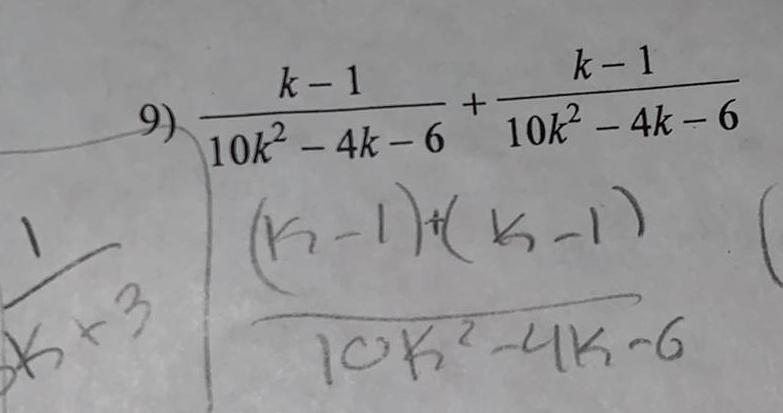 9) (k - 1)/(10k² - 4k - 6) + (k - 1)/(10k² - 4k - 6)
(k - 1) + (k - 1)
10k² - 4k - 6
1
k + 3